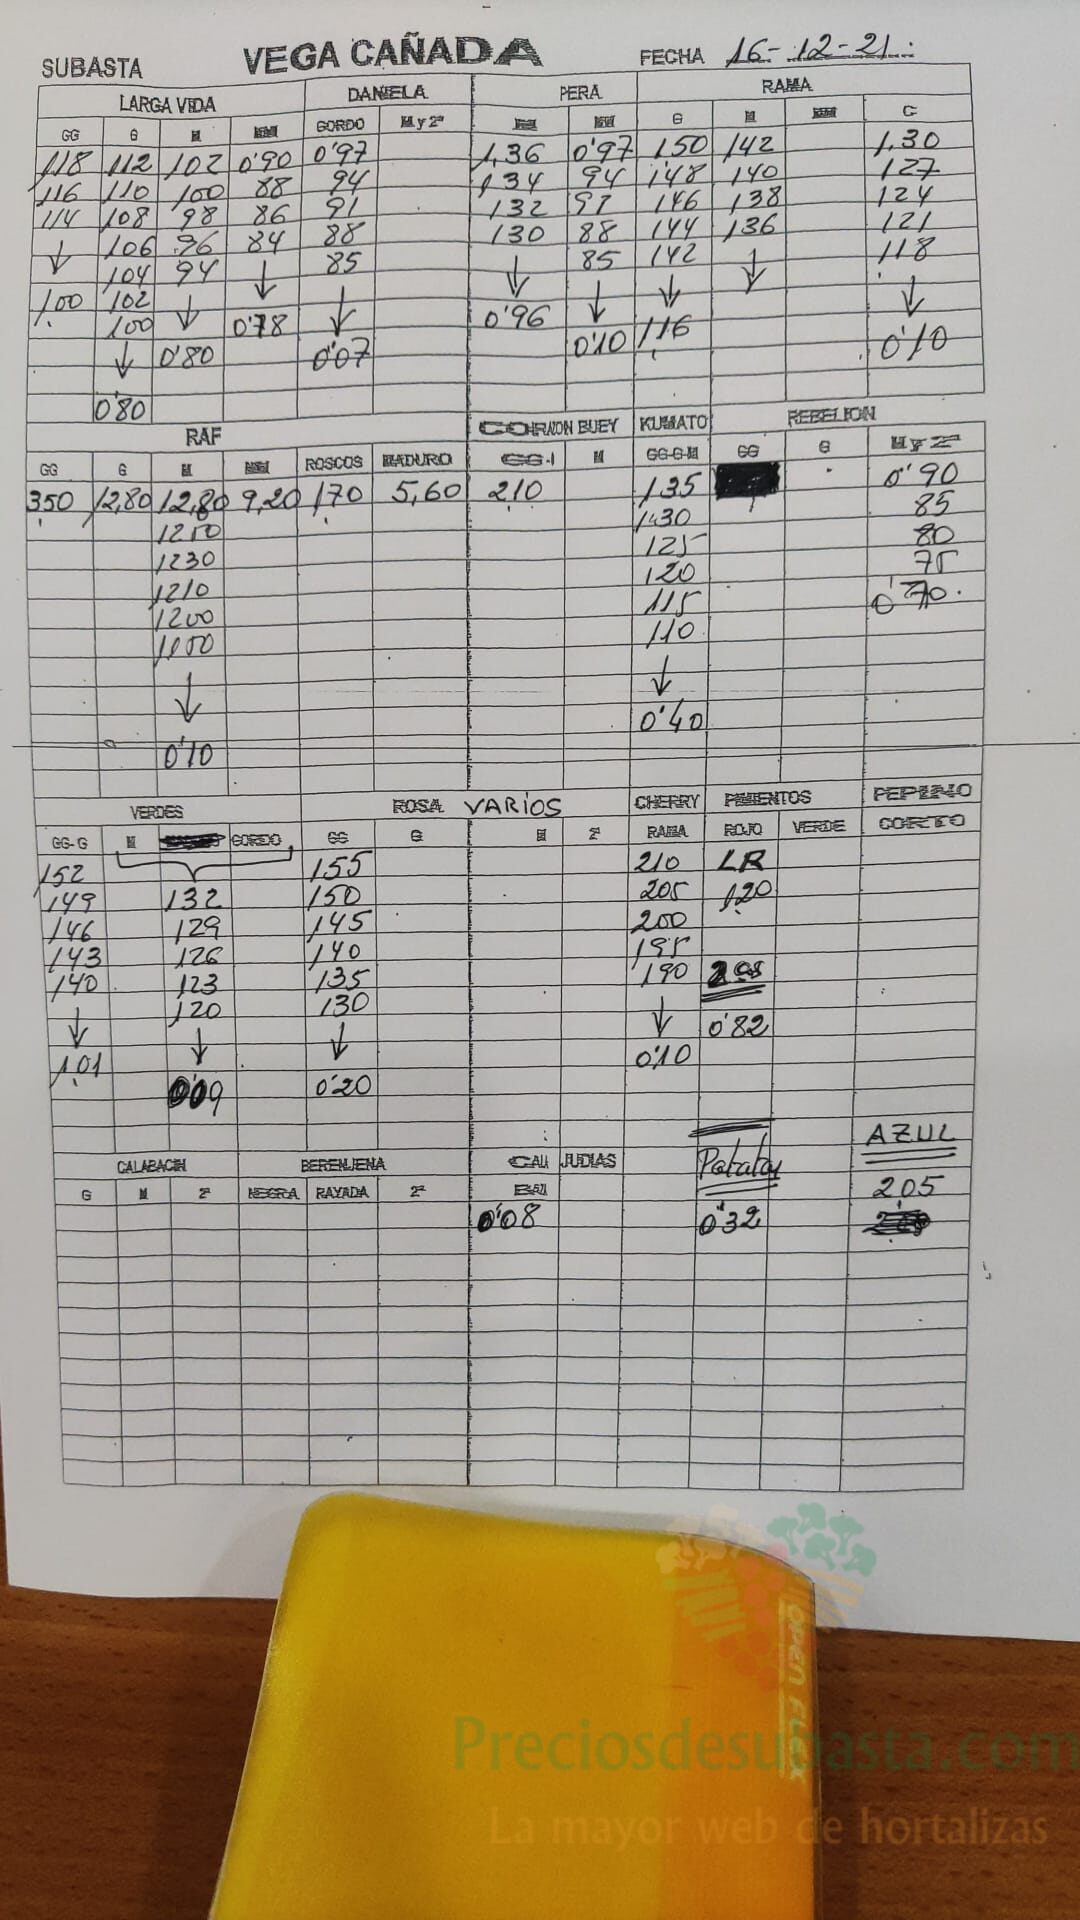 SUBASTA VEGA CAÑADA FECHA 16-12-21
LARGA VIDA DANIELA PERA RAMA
GG G M MM GORDO M y 2ª M MM G M MM G
118 112 102 0'90 0'97 1,36 0'97 150 142 1,30
116 110 100 88 94 134 94 148 140 127
114 108 98 86 91 132 91 146 138 124
↓ 106 96 84 88 130 88 144 136 121
104 94 ↓ 85 ↓ 85 142 ↓ 118
100 102 ↓ 0'78 ↓ 0'96 ↓ ↓ ↓
100 0'80 0'07 0'10 116 0'10
↓
0'80
RAF CORAZON BUEY KUMATO REBELION
GG G M MM ROSCOS MADURO GG-1 M GG-G-M GG G M y 2ª
350 12,80 12,80 9,20 170 5,60 210 135 0'90
1250 130 85
1230 125 80
1210 120 75
1200 115 0'70
1100 110
↓ ↓
0'10 0'40
VERDES ROSA VARIOS CHERRY PIMIENTOS PEPINO
GG-G M GORDO GG G M 2ª RAMA ROJO VERDE CORTO
152 155 210 LR
149 132 150 205 120
146 129 145 200
143 126 140 195
140 123 135 190 205
↓ 120 130 ↓ 0'82
101 ↓ ↓ 0'10
0'09 0'20
AZUL
CALABACIN BERENJENA CALI JUDIAS Patatas
G M 2ª NEGRA RAYADA 2ª BAZI 205
0'08 0'32
OPEN FLEX
Preciosdesubasta.com
La mayor web de hortalizas